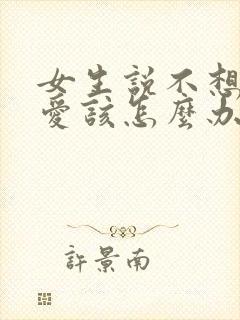 女生說不想
愛該怎麼办
許景南